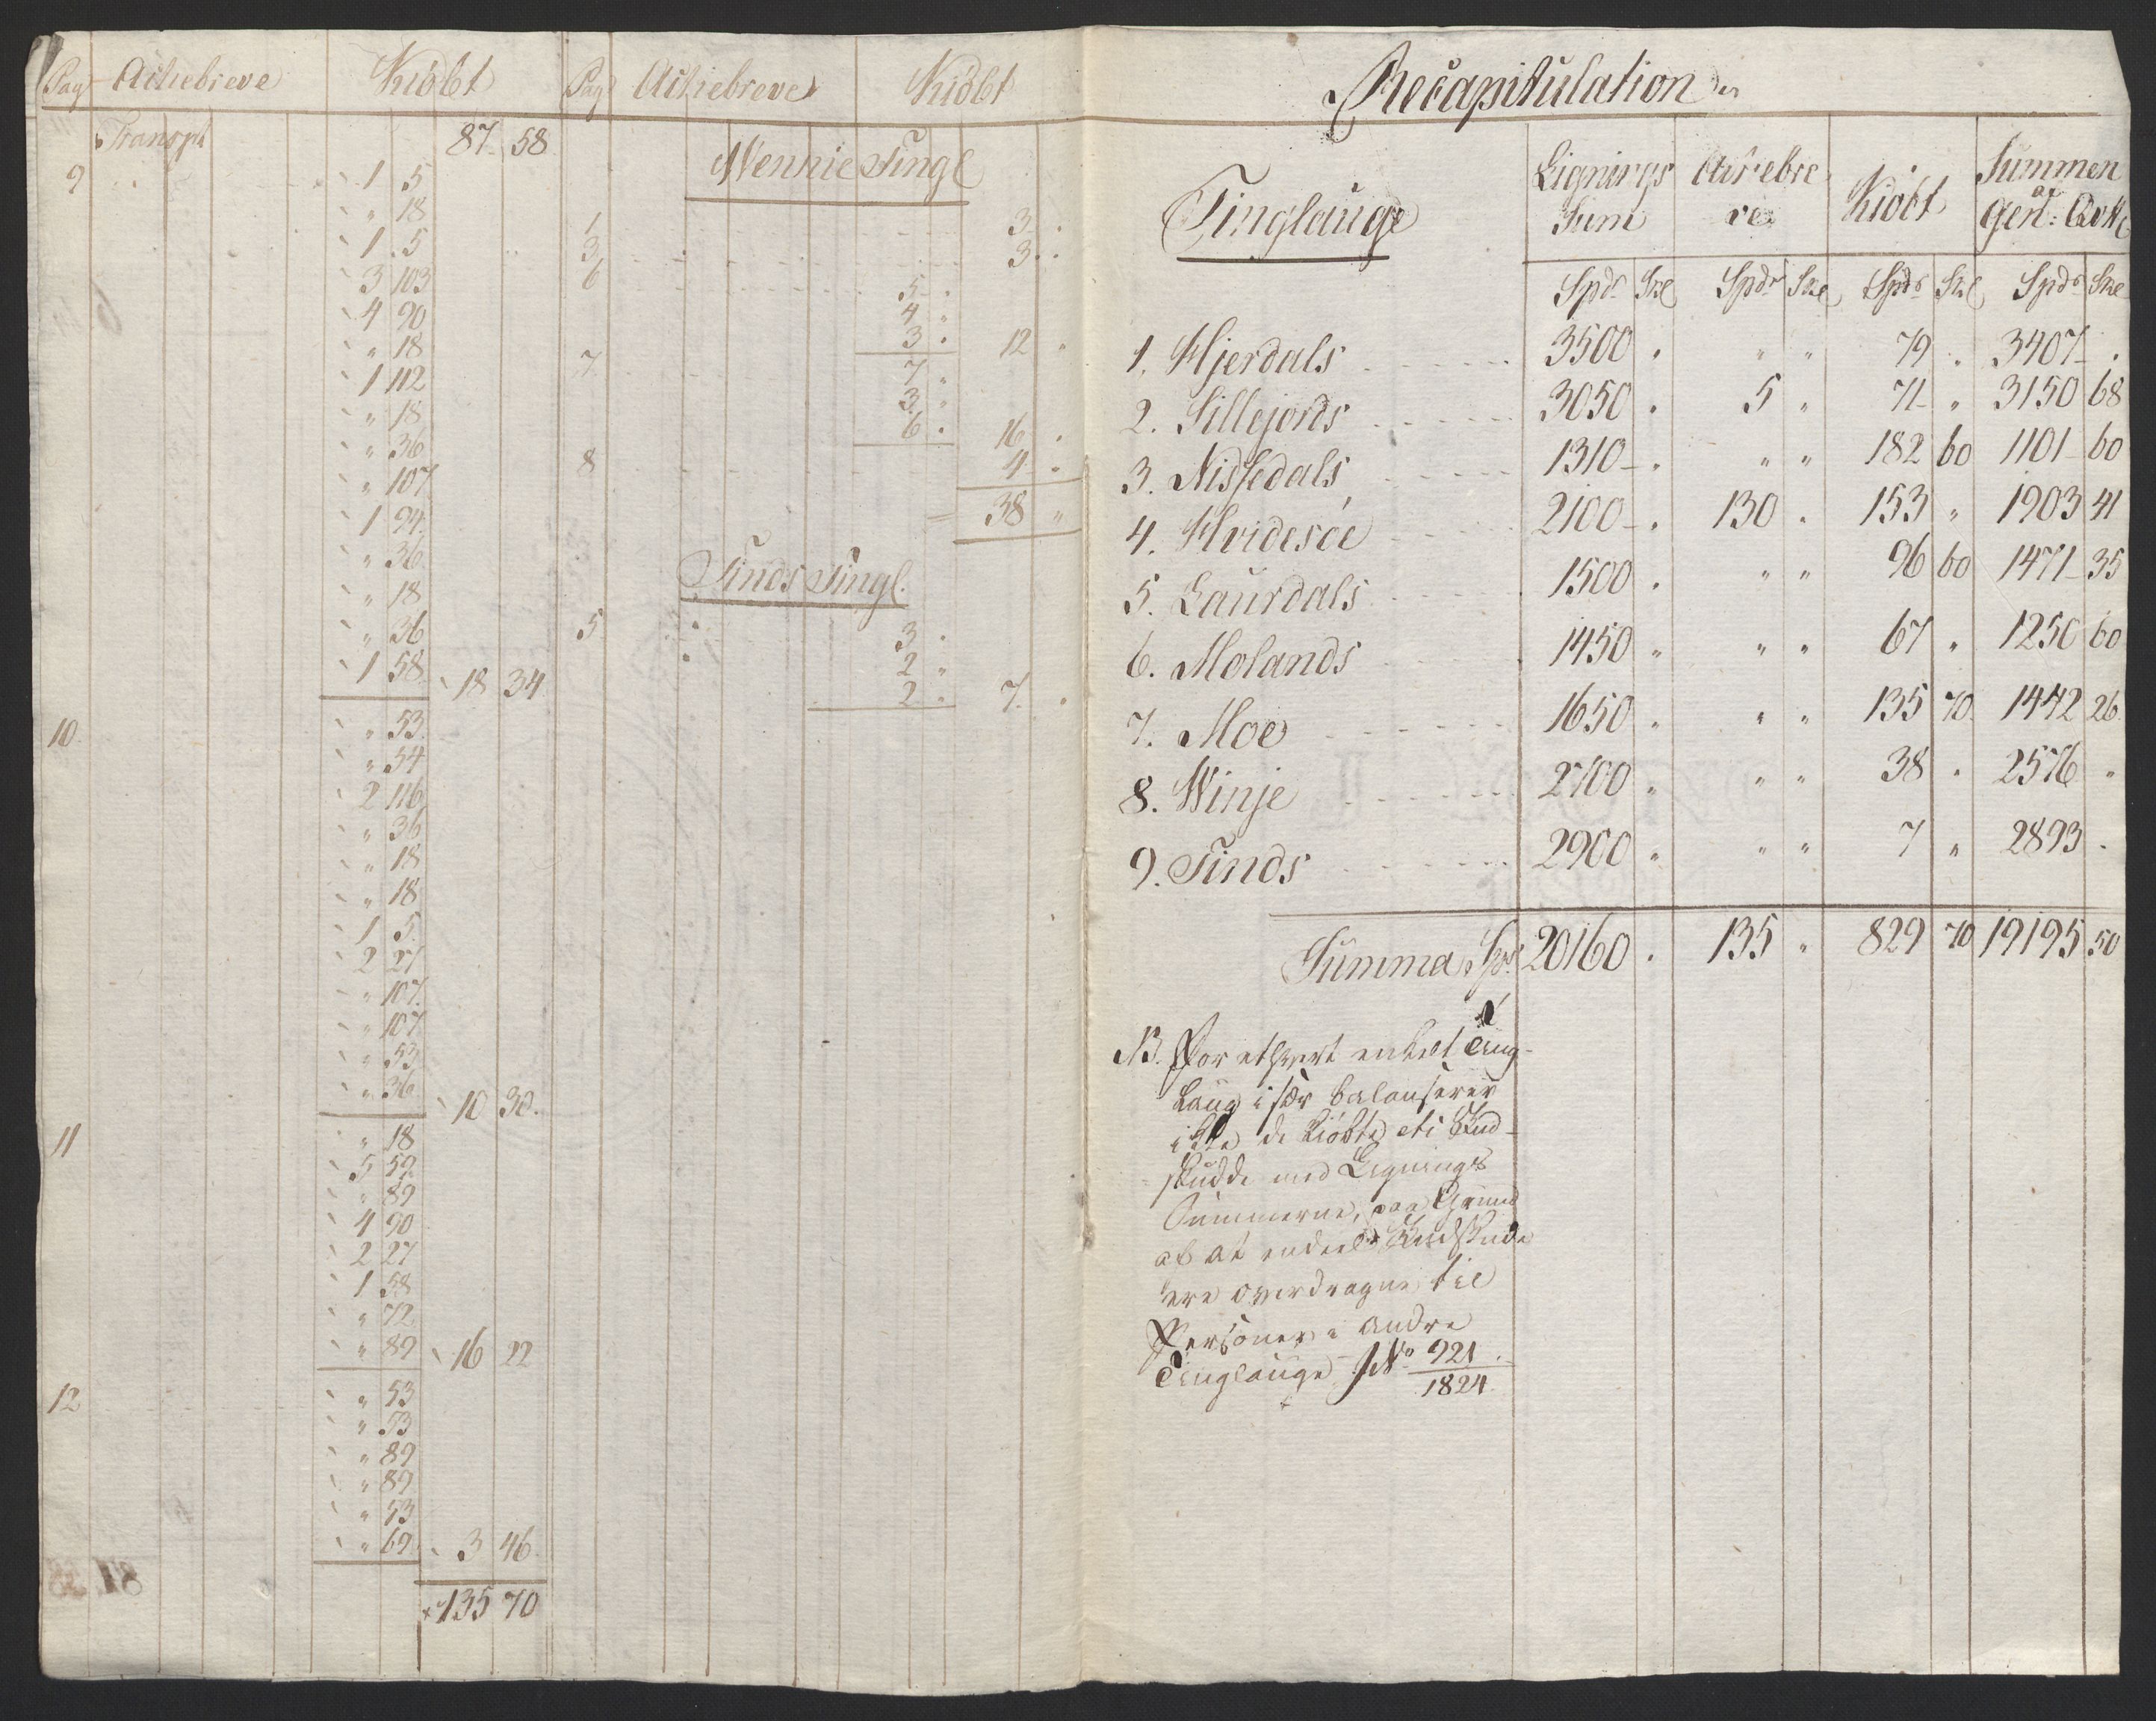 Pag Actiebreve Kiöbt
Transpt 87 58
9 1 5
" 18
1 5
3 103
4 90
" 18
1 112
" 18
" 36
" 107
1 94
" 36
" 18
" 36
1 58 18 34
10 " 53
" 54
2 116
" 36
" 18
" 18
1 5
2 27
" 107
" 107
" 53
" 36 10 30
11 " 18
5 59
" 89
4 90
2 27
1 58
" 72
" 89 16 22
12 " 53
" 53
" 89
" 89
" 53
" 69 3 46
135 70
Pag Actiebreve Kiöbt
Wennie Tingl
1 3 "
3 3 "
6 5 "
4 "
3 " 12 "
7 7 "
3 "
6 " 16 "
8 4 "
38 "
Tinds Tingl.
5 3 "
2 "
2 " 7 "
Recapitulation
Tinglauge
Lignings Sum
Actiebreve
Kiöbt
Summen af
Spdr Skl Spdr Skl Spdr Skl Spdr Skl
1. Hjerdals 3500 " " " 79 " 3407 "
2. Sillejords 3050 " 5 " 71 " 3150 68
3. Nissedals 1310 " " " 182 60 1101 60
4. Hvidesöe 2100 " 130 " 153 " 1903 41
5. Laurdals 1500 " " " 96 60 1471 35
6. Molands 1450 " " " 67 " 1250 60
7. Moe 1650 " " " 135 70 1442 26
8. Winje 2700 " " " 38 " 2576 "
9. Tinds 2900 " " " 7 " 2893 "
Summa Spd 20160 " 135 " 829 70 19195 50
NB. For ethvert enkelt Ting-
Laug i sær balanserer
ikke de kiöbte Ind-
skudde med Lignings
Summerne, paa Grund
af at endeel Indskude
ere overdragne til
Personer i andre
Tinglauge JNo 921
1824